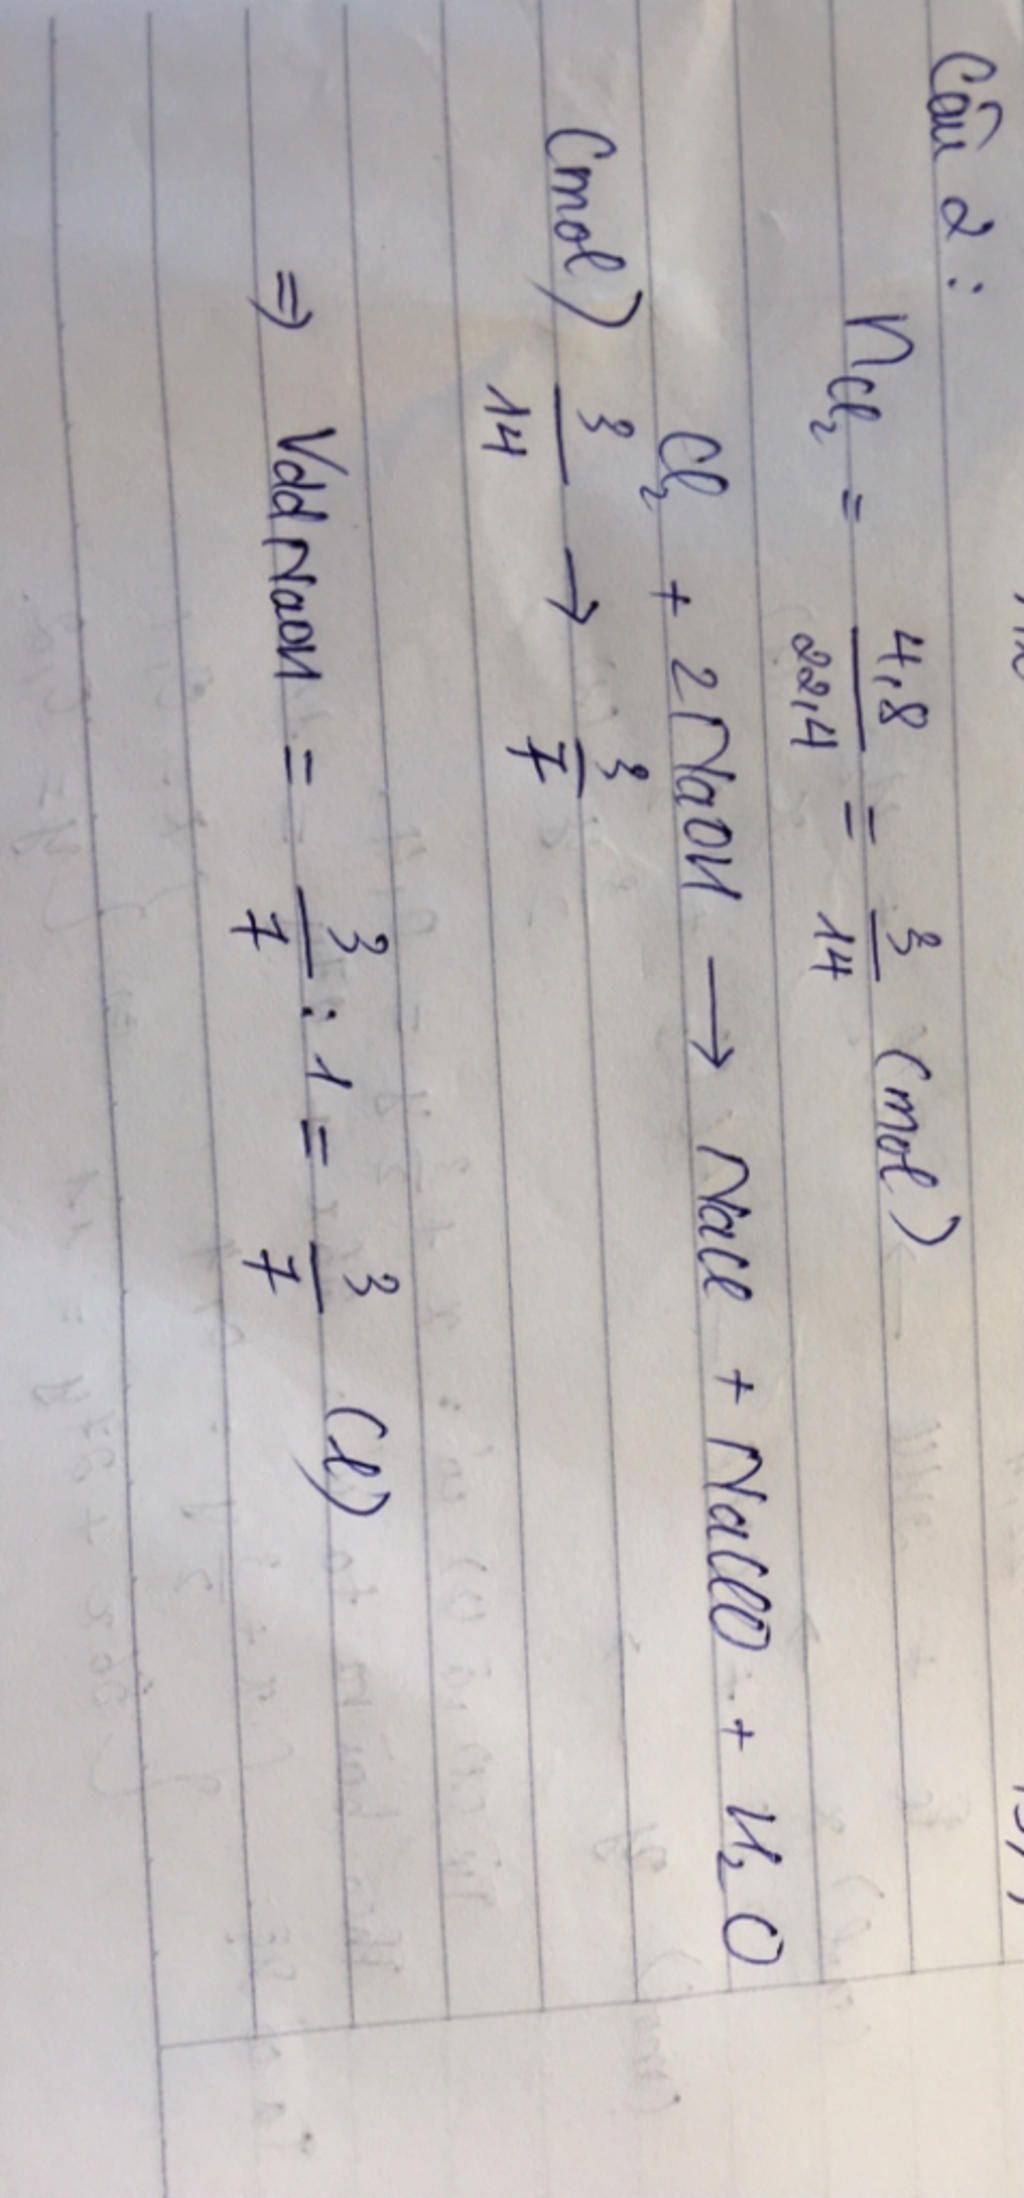 Câu 2:
nCl₂ = 4,8/22,4 = 3/14 (mol)
Cl₂ + 2NaOH → NaCl + NaClO + H₂O
(mol) 3/14 → 3/7
⇒ VddNaOH = 3/7 : 1 = 3/7 (l)